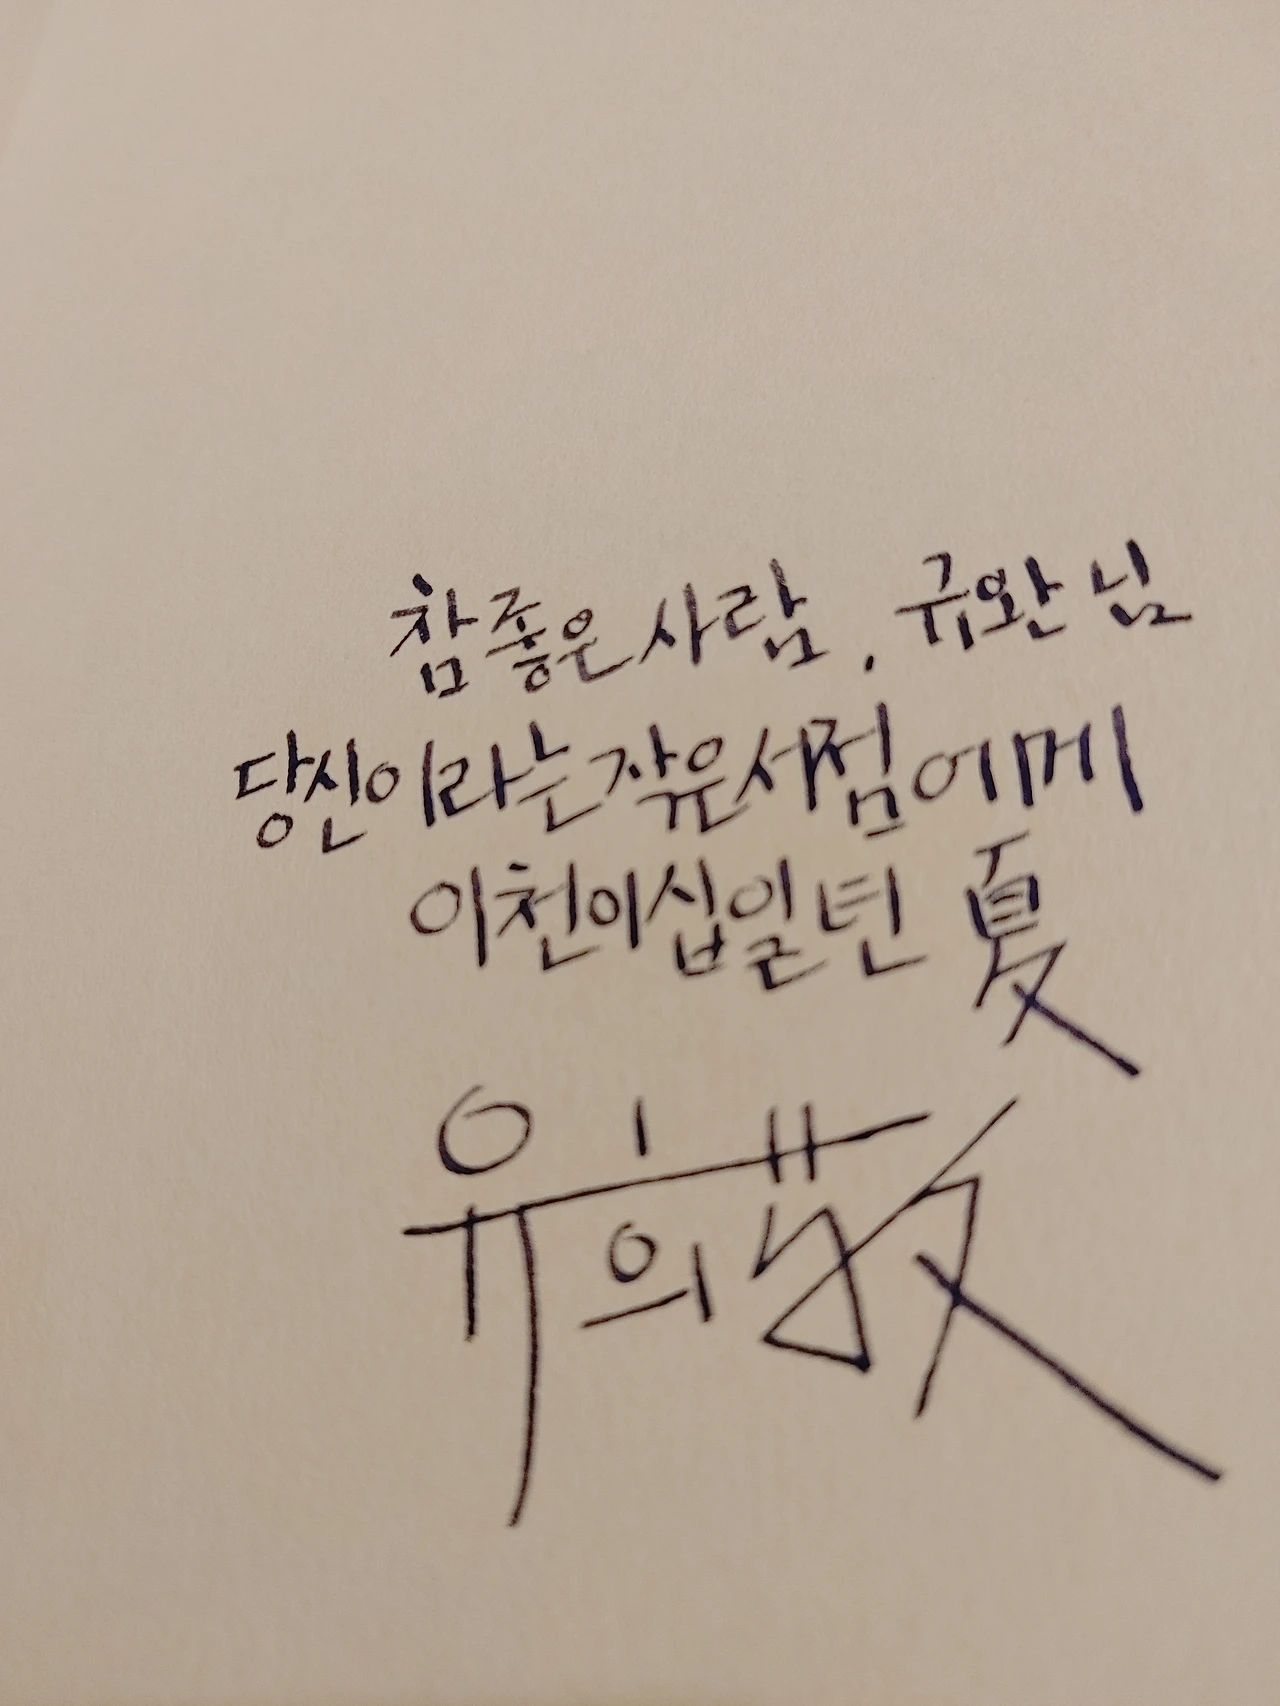 참 좋은 사람. 규완 님
당신이라는 작은 서점에게
이천이십일년 夏
유희敬